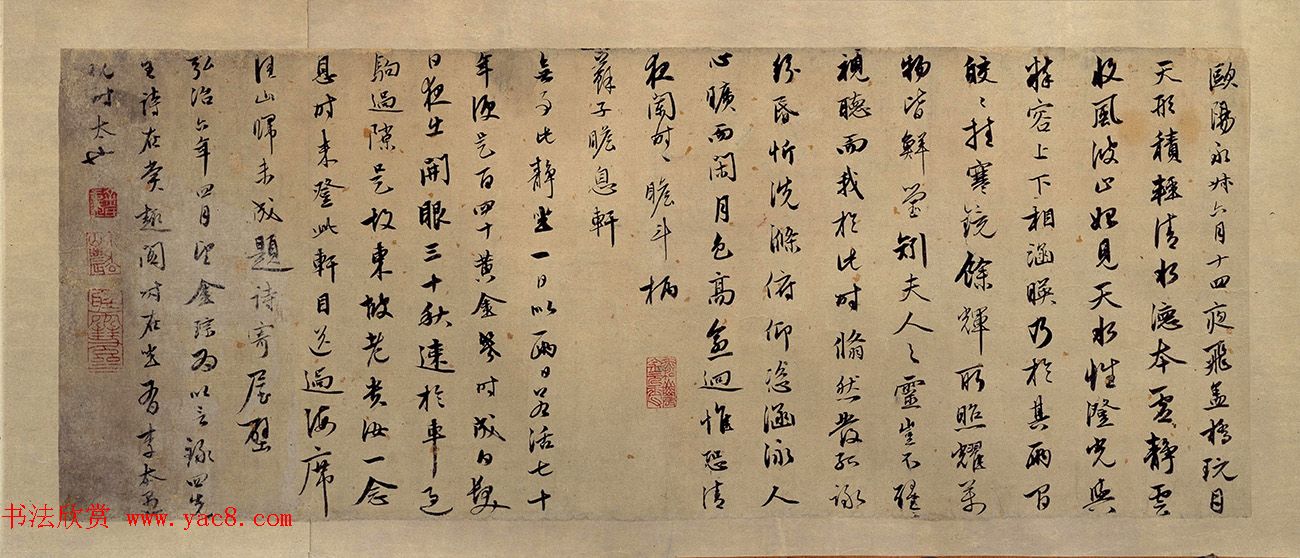 歐陽永叔六月十四夜飛蓋橋玩月
天形積輕清水德本虛靜雲
收風波止始見天水性澄光與
粹容上下相涵暎乃於其兩間
皎〻挂寒鏡餘輝所照耀萬
物皆鮮瑩矧夫人之靈豈不醒
視聽而我於此時翛然發孤詠
紛昏忻洗滌俯仰恣涵泳人
心曠而閑月色高愈迥惟恐清
夜闌時〻瞻斗柄
蘇子瞻息軒
無事此靜坐一日以兩日若活七十
年便是百四十黃金幾時成白髮
日夜出開眼三十秋速於
駒過隙是故東坡老貴汝一念
息時來登此軒目送過海席
山歸未成題詩寄屋壁
弘治六年四月望金琮為以言錄四先
生詩在賞趣閣時在坐者李
書法欣赏 www.yac8.com